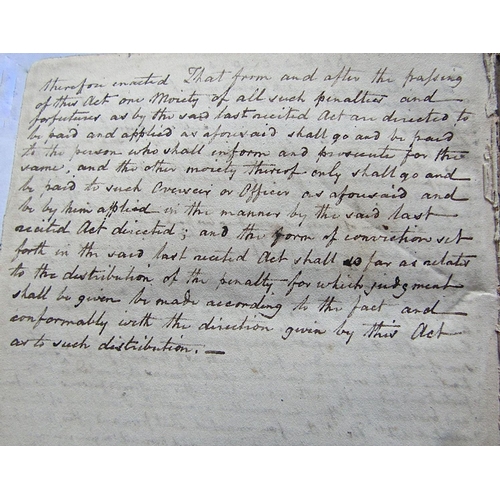 therefore enacted That from and after the passing
of this Act one Moiety of all such penalties and
forfeitures as by the said last recited Act are directed to
be paid and applied as aforesaid shall go and be paid
to the person who shall inform and prosecute for the
same, and the other moiety thereof only shall go and
be paid to such Overseer or Officer as aforesaid and
be by him applied in the manner by the said last
recited Act directed; and the form of conviction set
forth in the said last recited Act shall so far as relates
to the distribution of the penalty for which judgment
shall be given be made according to the fact and
conformably with the direction given by this Act
as to such distribution. —